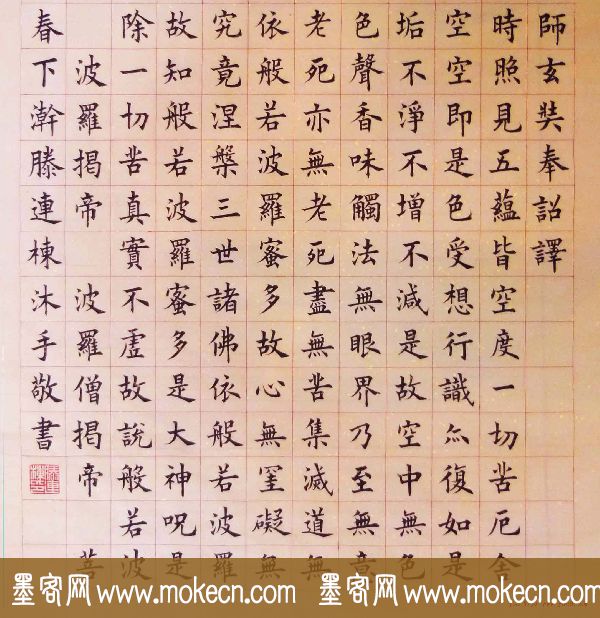 師玄奘奉詔譯
時照見五蘊皆空度一切苦厄舍
空空即是色受想行識亦復如是
垢不淨不增不減是故空中無色
色聲香味觸法無眼界乃至無意
老死亦無老死盡無苦集滅道無
依般若波羅蜜多故心無罣礙無
究竟涅槃三世諸佛依般若波羅
故知般若波羅蜜多是大神呪是
除一切苦真實不虛故說般若波
波羅揭帝 波羅僧揭帝 菩
春下澣滕連棟沐手敬書
墨客网 www.mokecn.com 墨客网 www.mokecn.com